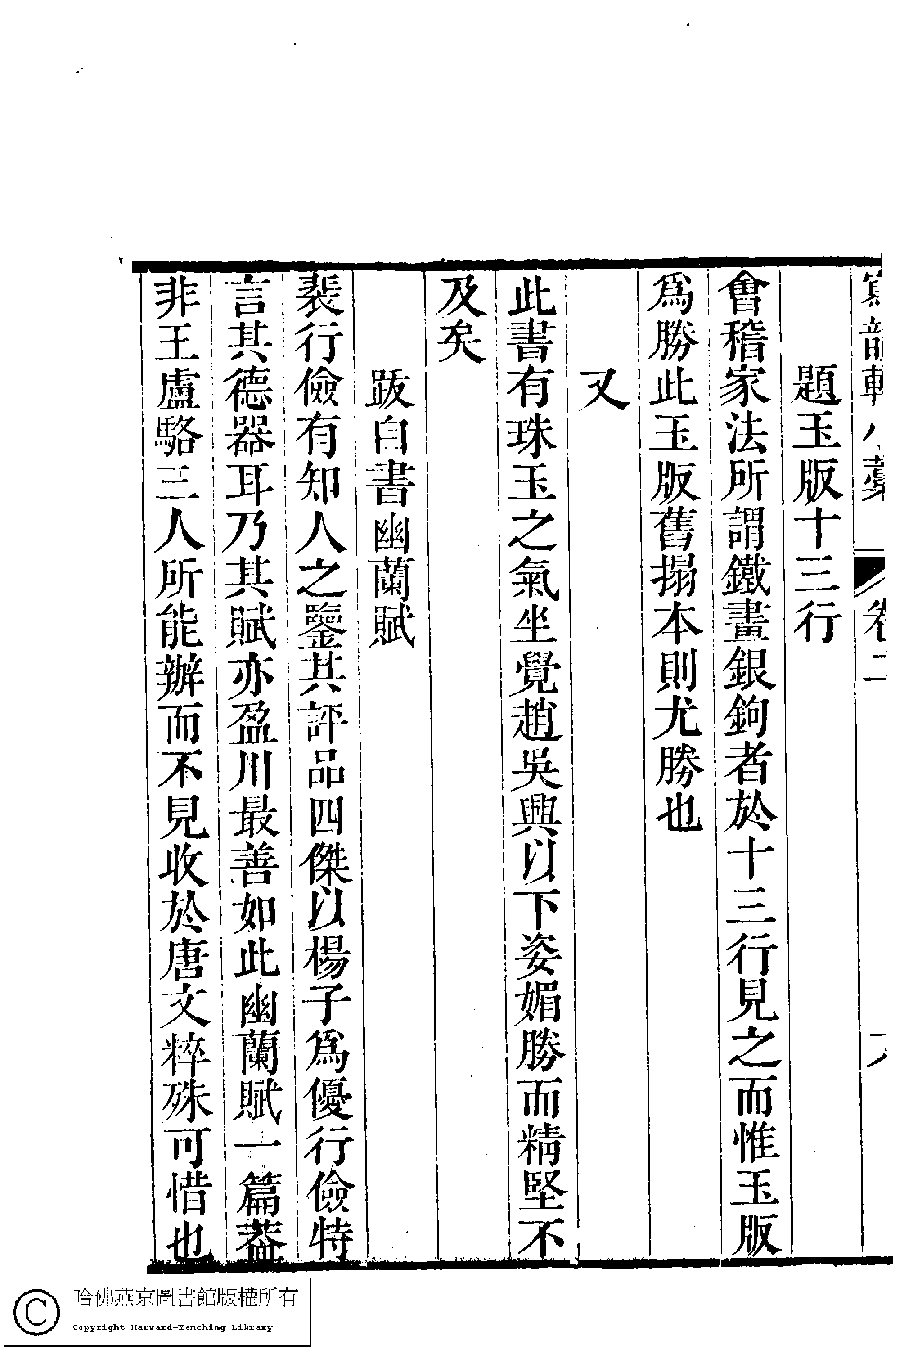 題玉版十三行
會稽家法所謂鐵畫銀鉤者於十三行見之而惟玉版
爲勝此玉版舊搨本則尤勝也
又
此書有珠玉之氣坐覺趙吳興以下姿媚勝而精堅不
及矣
跋自書幽蘭賦
裴行儉有知人之鑒其評品四傑以楊子爲優行儉特
言其德器耳乃其賦亦盈川最善如此幽蘭賦一篇蓋
非王盧駱三人所能辦而不見收於唐文粹殊可惜也
哈佛燕京圖書館版權所有
Copyright Harvard-Yenching Library